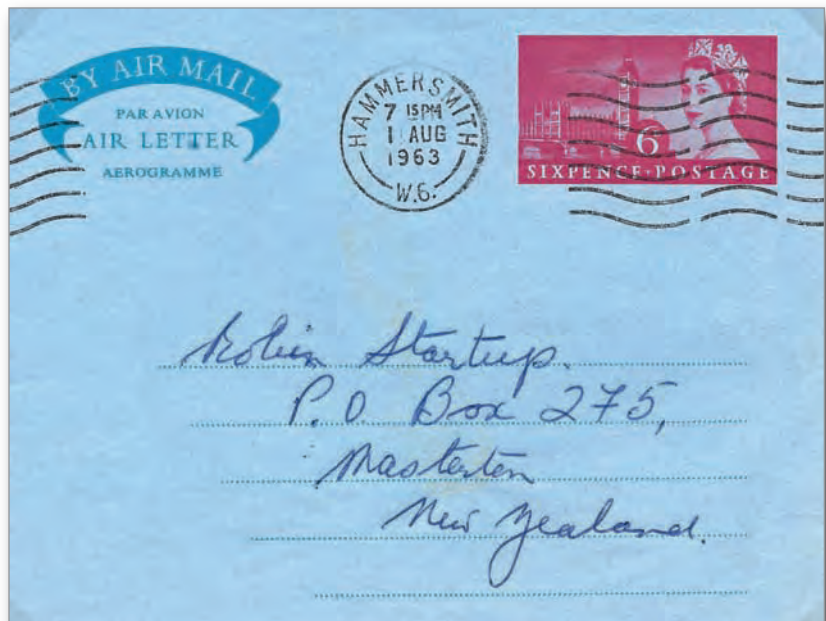 BY AIR MAIL
PAR AVION
AIR LETTER
AEROGRAMME
HAMMERSMITH
7 15PM
1 AUG
1963
W.6.
6
SIXPENCE·POSTAGE
Robin Startup.
P.O Box 275,
Masterton
New Zealand.